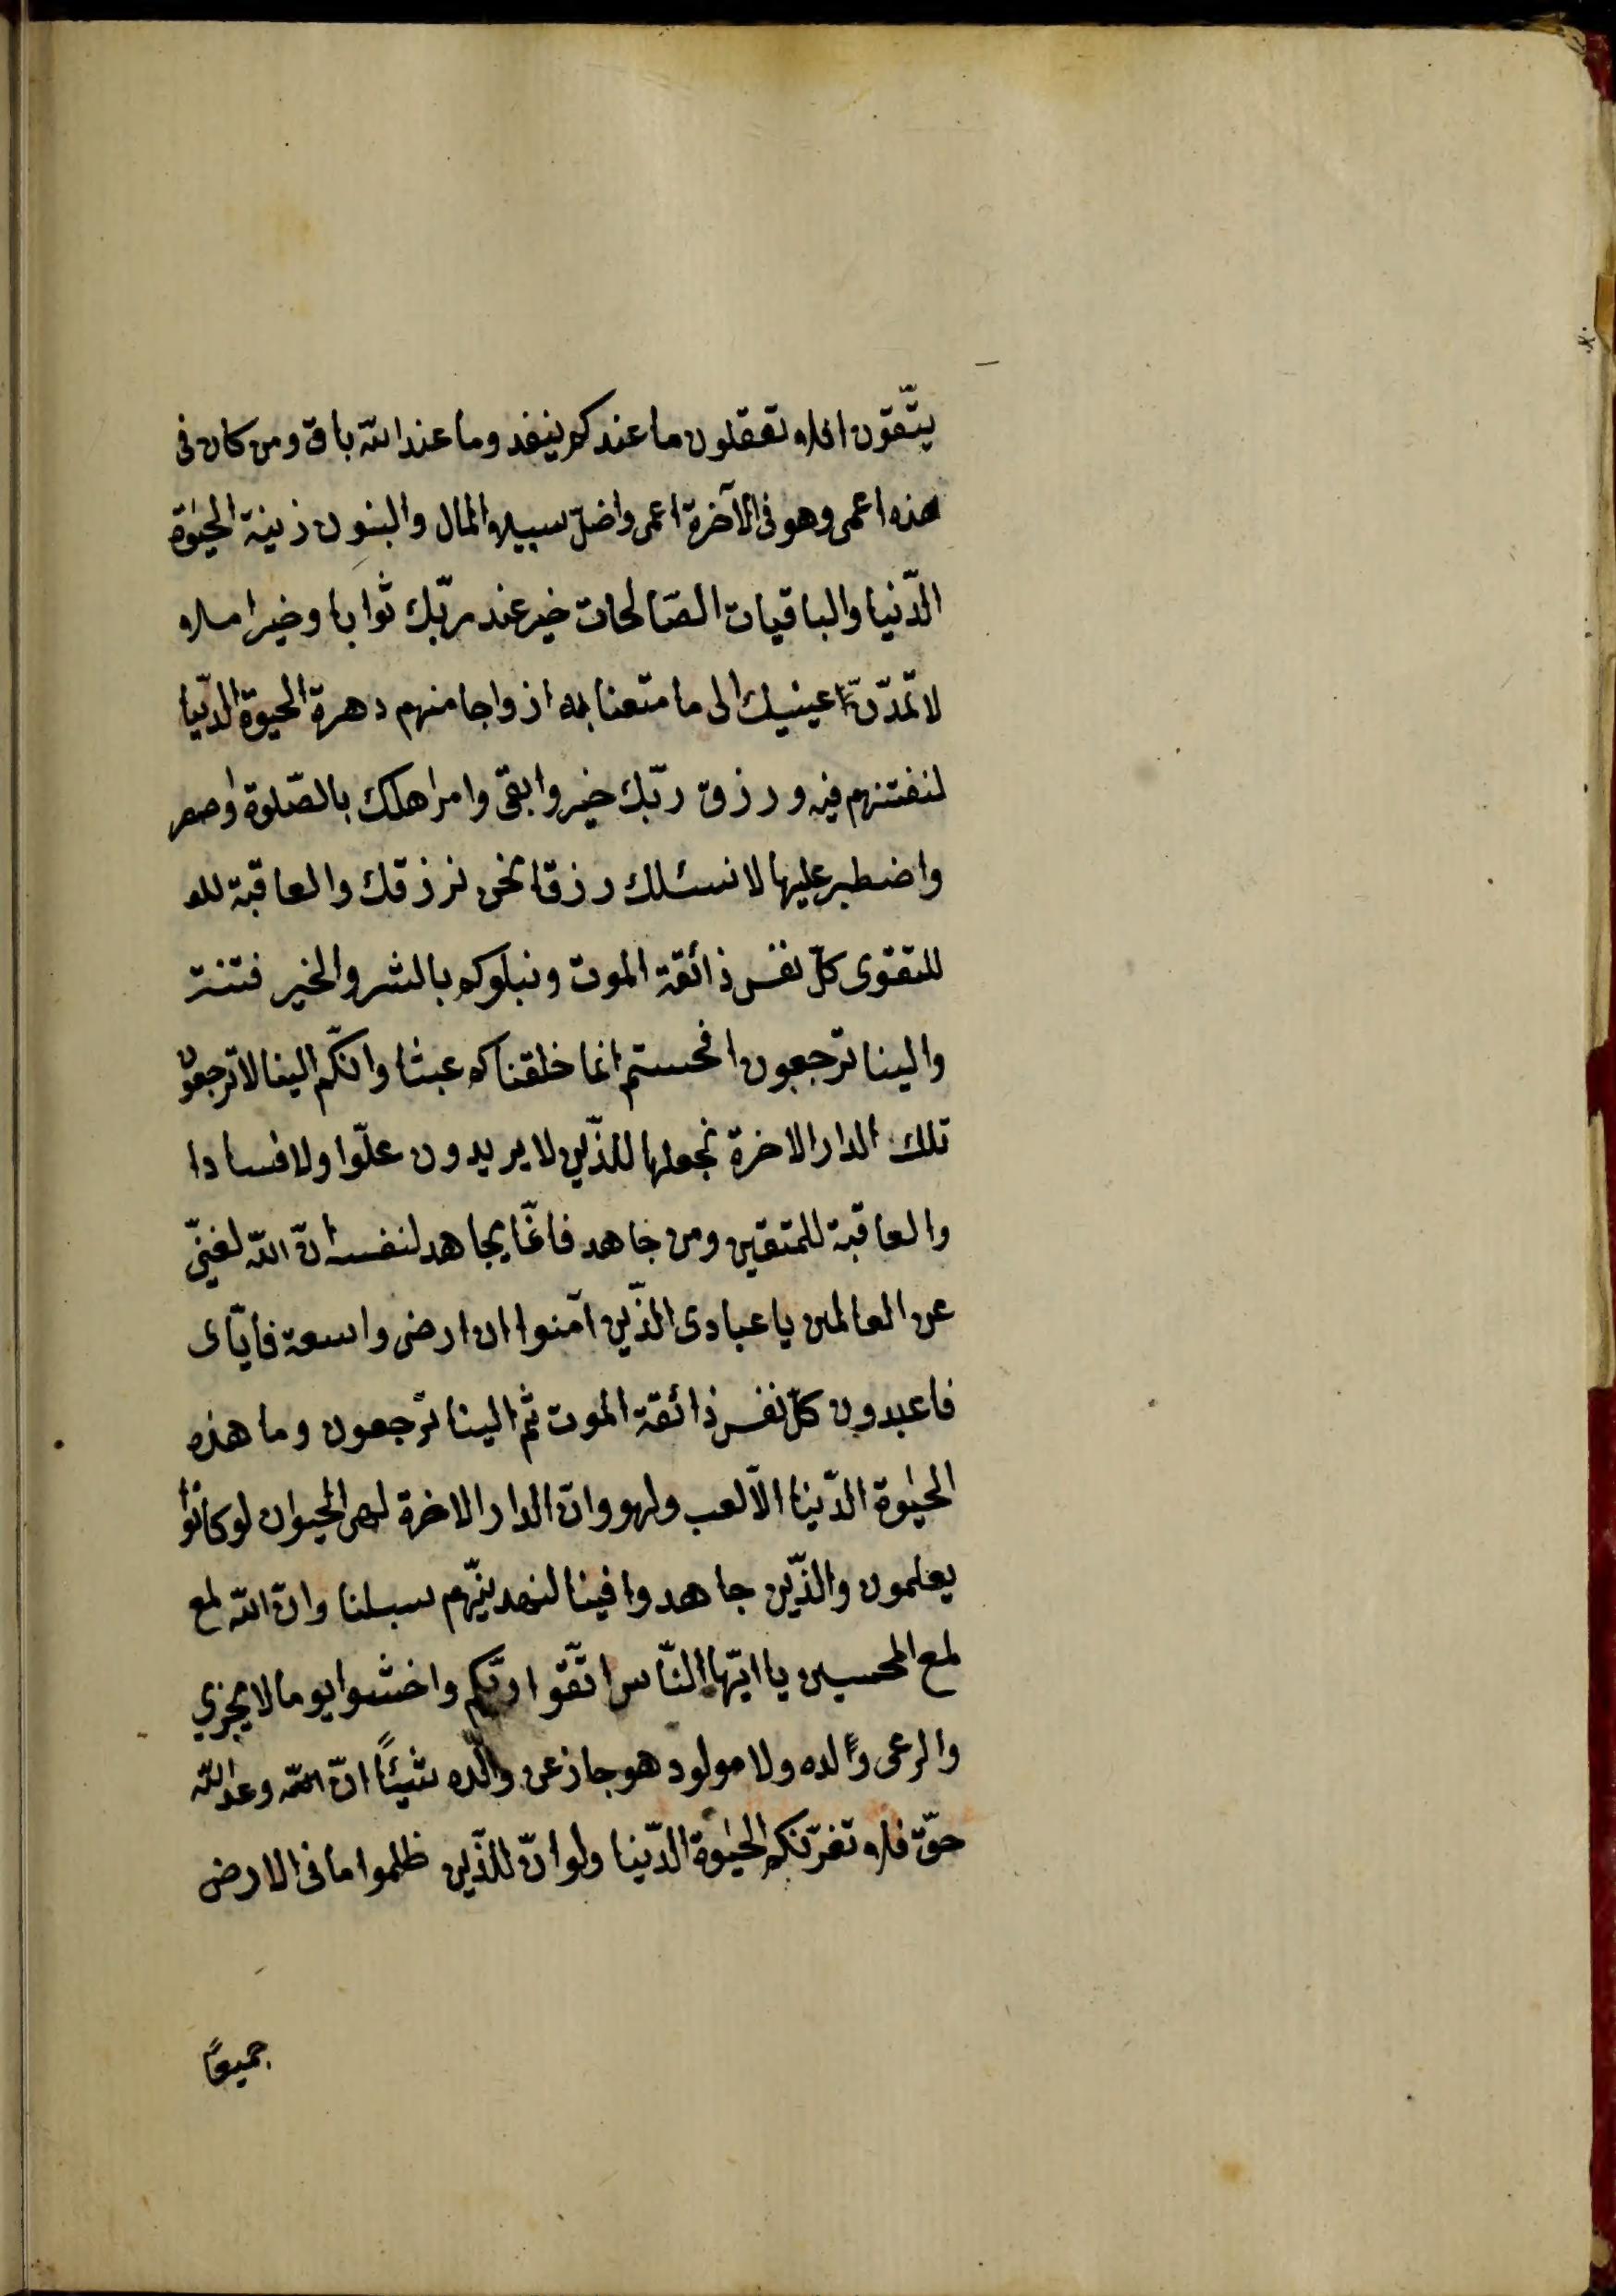 يتّقون افلا تعقلون ما عندكم ينفد وما عند اللّه باق ومن كان فى
هذه اعمى وهو فى الآخرة اعمى واضلّ سبيلا والمال والبنون زينة الحيوة
الدّنيا والباقيات الصّالحات خير عند ربّك ثوابا وخير املا
لا تمدّنّ عينيك الى ما متعنا به ازواجا منهم دهرة الحيوة الدّنيا
لنفتنهم فيه ورزق ربّك خير وابقى وامر اهلك بالصّلوة
واضطبر عليها لا نسئلك رزقا نحن نرزقك والعاقبة للـ
للتقوى كلّ نفس ذائقة الموت ونبلوكم بالشر والخير فتنة
والينا ترجعون افحستم انما خلقناكم عبثا وانكّم الينا لا ترجعون
تلك الدار الاخرة نجعلها للذّين لا يريدون علّوا ولا فسادا
والعاقبة للمتقين ومن جاهد فانّما يجاهد لنفسه انّ اللّه لغنىّ
عن العالمين يا عبادى الذّين آمنوا ان ارضى واسعة فايّاى
فاعبدون كلّ نفس ذائقة الموت ثمّ الينا ترجعون وما هذه
الحيوة الدّنيا الّا لعب ولهو وانّ الدار الاخرة لهى الحيوان لو كانوا
يعلمون والذّين جاهدوا فينا لنهدينّهم سبلنا وانّ اللّه لمع
لمع المحسين يا ايّها النّاس اتّقوا ربّكم واخشوا يوما لا يجزي
والد عن ولده ولا مولود هو جاز عن والده شيئاً انّ اللّه وعد اللّه
حقّ فلا تغرّنكم الحيوة الدّنيا ولو انّ للذّين ظلموا ما فى الارض
جميعاً